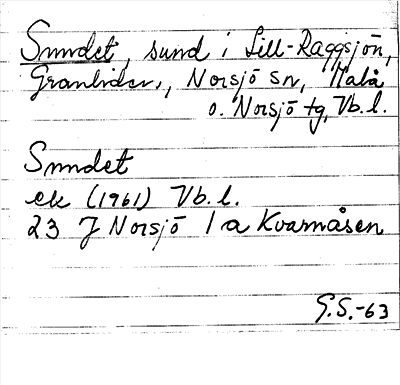 Sundet, sund i Lill-Raggsjön,
Granliden, Norsjö sn, Malå
o. Norsjö tg, Vb. l.
Sundet
ek (1961) Vb. l.
23 J Norsjö 1 a Kvarnåsen
G.S.-63